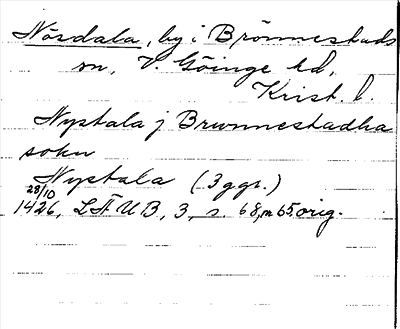 Nösdala, by i Brönnestads
sn, V. Göinge hd,
Krist. l.
Nystala j Brwnnestadha
sokn
Nystala (3 ggr.)
28/10
1426, LÄUB, 3, s. 68, n 65, orig.